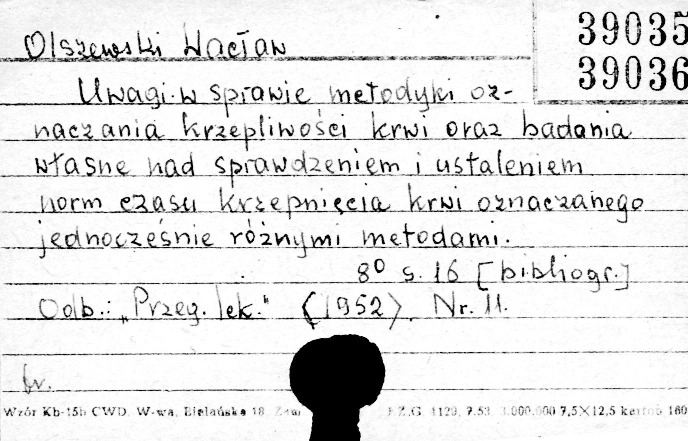 39035
39036
Olszewski Wacław
Uwagi w sprawie metodyki oz-
naczania krzepliwości krwi oraz badania
własne nad sprawdzeniem i ustaleniem
norm czasu krzepnięcia krwi oznaczanego
jednocześnie różnymi metodami.
8° s. 16 [bibliogr.]
Odb.: "Przeg. lek." (1952) Nr. 11.
Wzór Kb-15b CWD, W-wa, Bielańska 18 7.53 3.000.000 7,5×12,5 160